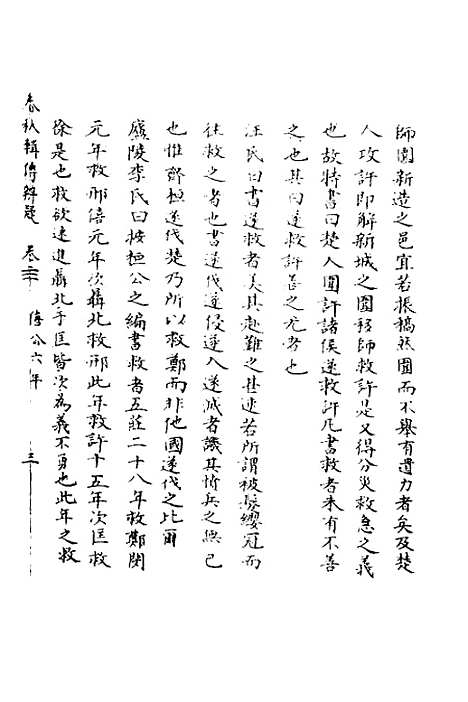 師圍新造之邑宜若振槁然圍而不舉有遺力者矣及楚
人攻許即解新城之圍移師救許是又得分災救急之義
也故特書曰楚人圍許諸侯遂救許凡書救者未有不善
之也其曰遂救許善之尤者也
汪氏曰書遂救者美其赴難之甚速若所謂被髮纓冠而
往救之者也書遂伐遂侵遂入遂滅者譏其憤兵之無已
也惟齊桓遂伐楚乃所以救鄭而非他國遂伐之比爾
廬陵李氏曰按桓公之編書救者五莊二十八年救鄭閔
元年救邢僖元年次聶北救邢此年救許十五年次匡救
徐是也救欲速進聶北于匡皆次為義不勇也此年之救
春秋輯傳辨疑 卷三十 僖公六年 三